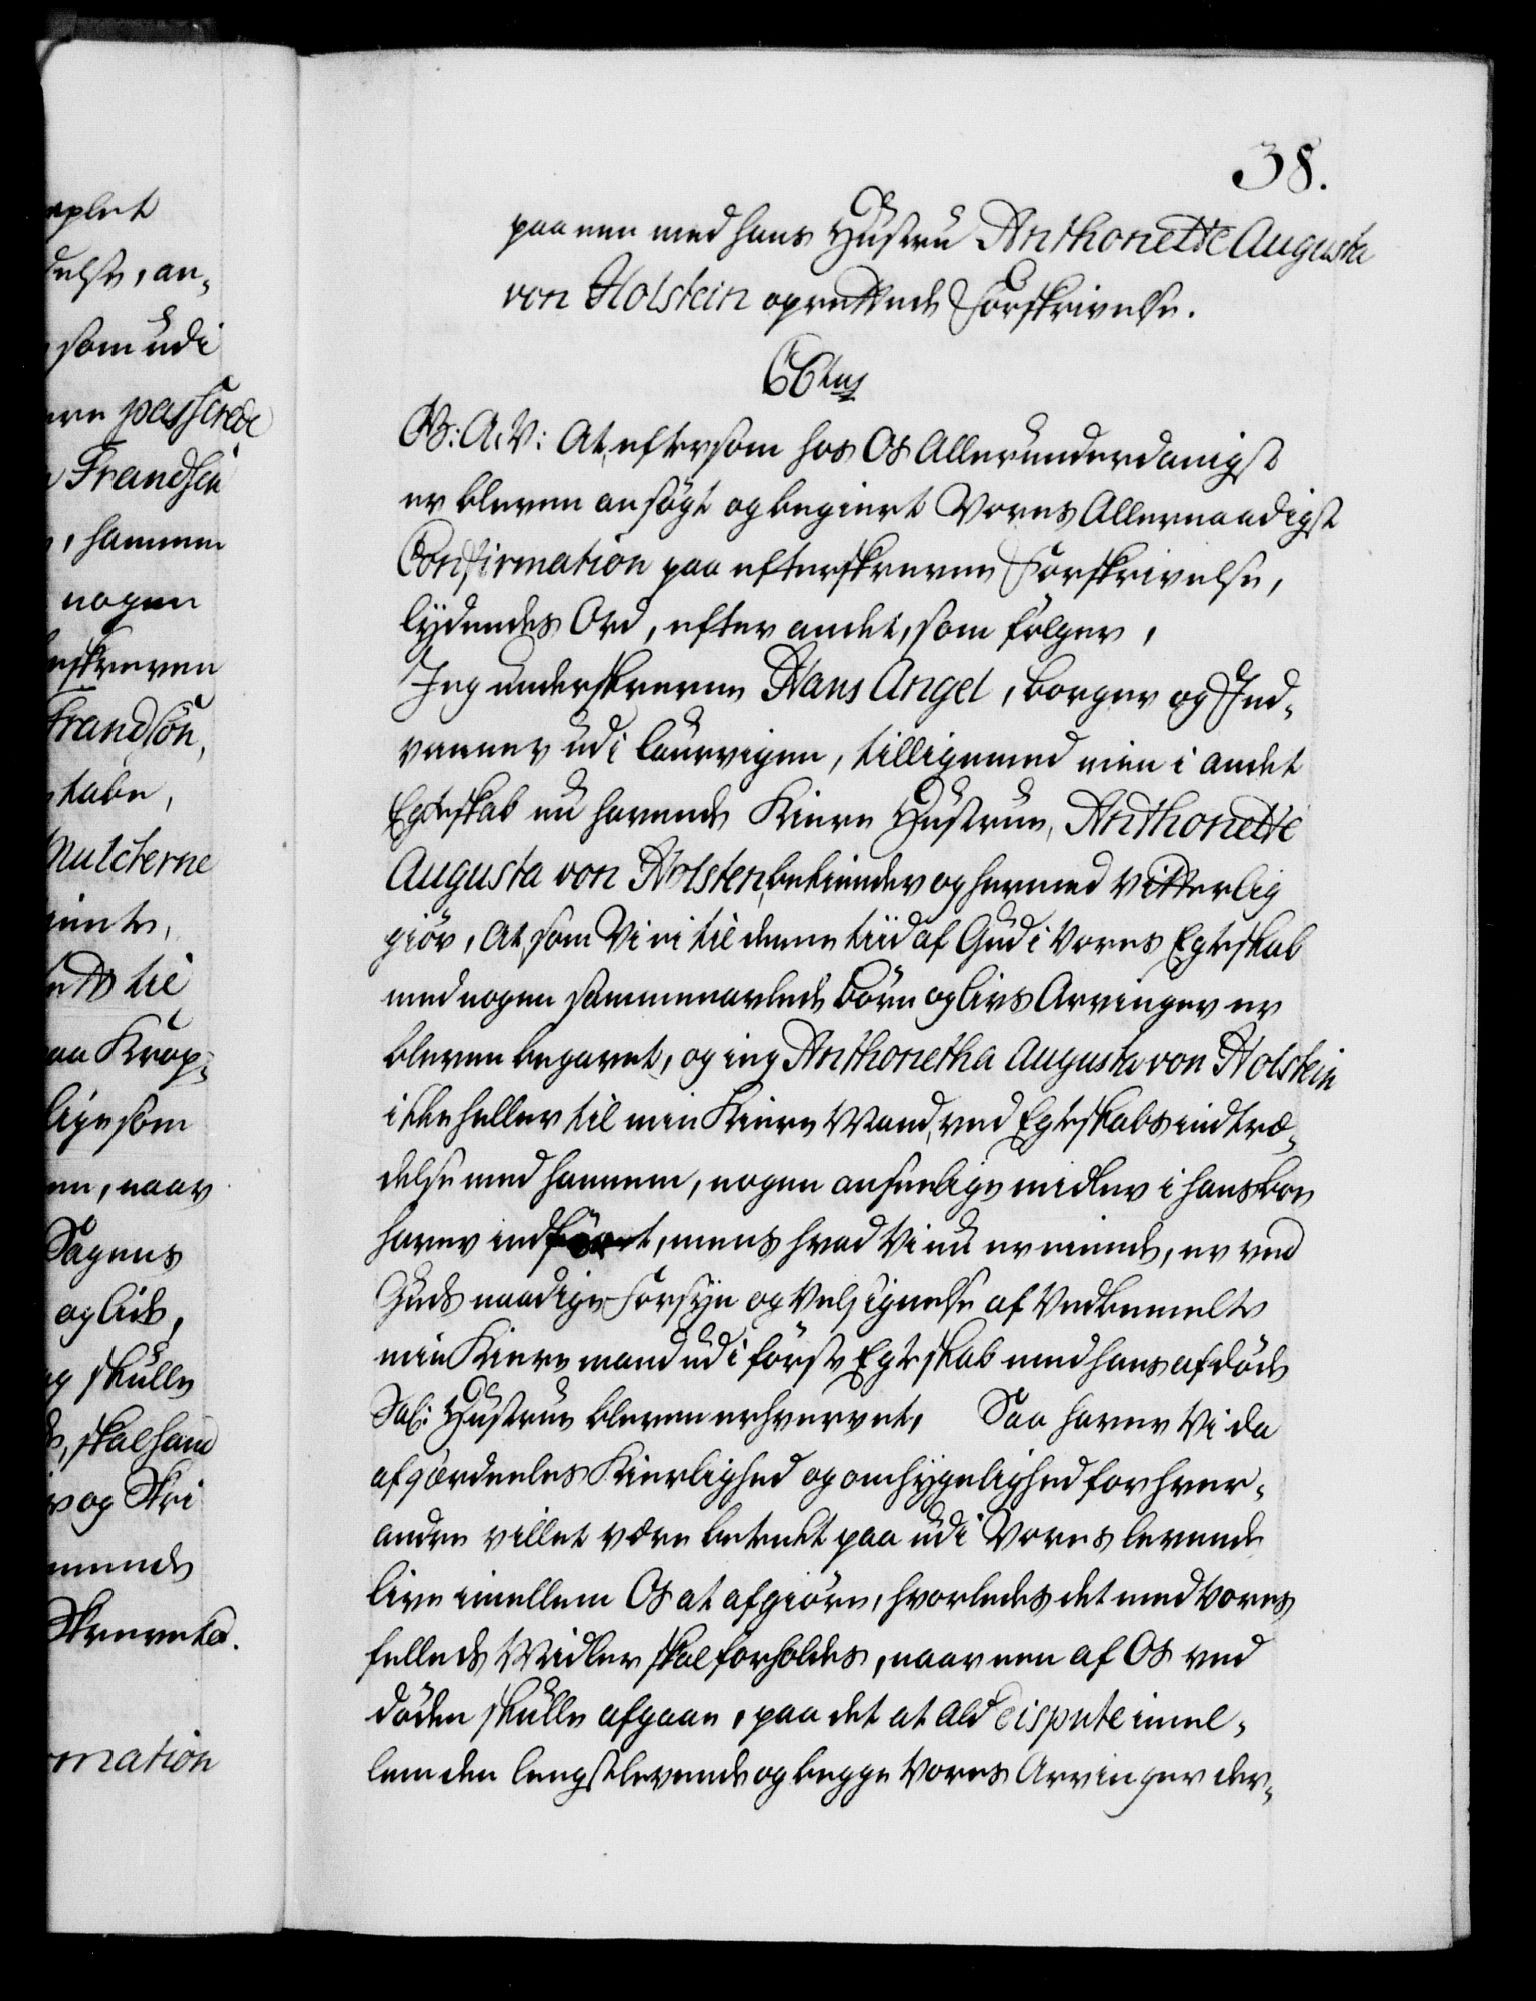 38.
paa een med hans Hustru Anthonette Augusta
von Holstein oprettede Forskrivelse.
C6tus
G: A: V: At eftersom hos Os Allerunderdanigst
er bleven ansögt og begiert Vores Allernaadigst
Confirmation paa efterskrevne Forskrivelse,
lydendes Ord, efter andet, som fölger,
Jeg underskrevne Hans Angel, borger og Ind-
vaaner udi Laurvigen, tilligemed min i andet
Egteskab nu havende Kiere Hustrue, Anthonette
Augusta von Holsten, bekiender og hermed Vitterlig
giör, At, som Vi ei til denne tiid af Gud i Vores Egteskab
med nogen sammenavlede börn og livs Arvinger er
bleven begavet, og jeg Anthonetha Augusta von Holstein
ikke heller til min Kiere Mand, ved Egteskabs indtræ-
delse med hannem, nogen anseelige midler i hans boe
haver indfört, mens hvad Vi nu er eiende, er ved
Guds naadige Forsyn og Velsignelse af Vedbemelte
min Kiere mand udi förste Egteskab med hans afdöde
Sal: Hustrue bleven erhvervet, Saa haver Vi da
af særdeeles Kierlighed og omhyggelighed for hver-
andre villet være betenkt paa udi Vores levende
live imellem Os at afgiöre, hvorledes det med Vores
felleds Midler skal forholdes, naar een af Os ved
döden skulle afgaae, paa det at ald dispute imel-
lem den lengstlevende og begge Vores Arvinger der-
delse, an-
som udi
passerede
Frandsen
, hannem
nogen
Frandsön,
Mulcterne
til
ligesom
, naar
Sagens
og lide,
skulle
, skal hand
mation